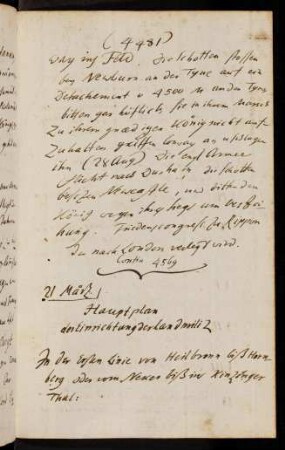 (4481)
Way ins Feld. Die Schotten stossen
bey Newburn an der Tyne auf ein
Detachement v 4500 M an der Tyne
bitten gar höflich, sie in ihrem Marsch
zu ihrem gnædigen König nicht auf
zuhalten greiffen Conway an u schlagen
ihn (28 Aug) Die engl Armee
zieht nach Durham die Schotten
besezen Newcastle, und bitten den
König wegen ihres
hung. Friedenscongress zu Rippon
der nach London verlegt wird.
Contin 4569
21 März
Hauptplan
der Einrichtung der Landmiliz
In der ersten Linie von Heilbronn biß Horn
berg oder vom Neccar biß ins Kinziger
Thal: